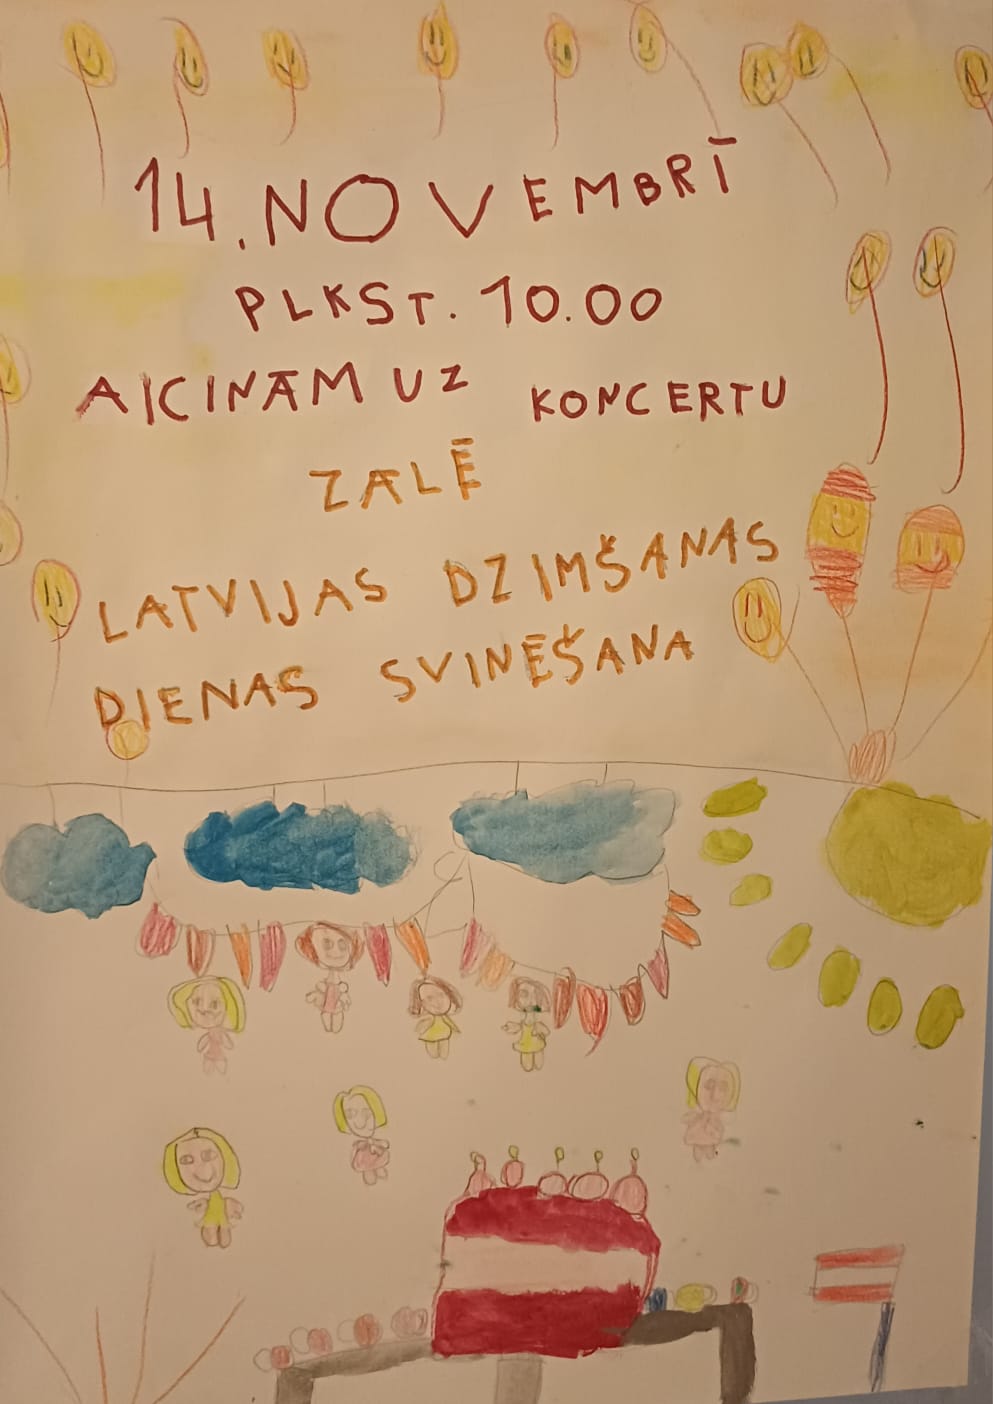 14. NOVEMBRĪ
PLKST. 10.00
AICINĀM UZ KONCERTU
ZALĒ
LATVIJAS DZIMŠANAS
DIENAS SVINĒŠANA